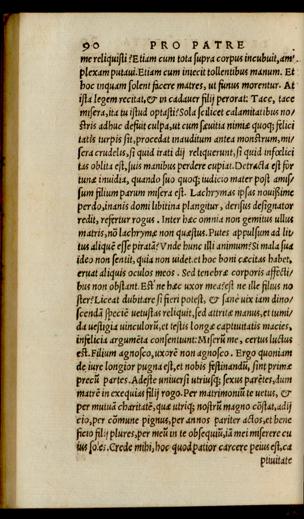 90 PRO PATRE
me reliquisti? Etiam cum tota supra corpus incubuit, am
plexam putaui. Etiam cum iniecit tollentibus manum. Et
hoc inquam solent facere matres, ut funus morentur. At
ista legem recitat, & in cadauer filij perorat. Tace, tace
misera, ita tu istud optasti? Sola scilicet calamitatibus no/
stris adhuc defuit culpa, ut cum sæuitia nimiæ quoq; felici
tatis turpis sit, procedat inauditum antea monstrum, mi/
sera crudelis, si quid irati dij reliquerunt, si quid infelici
tas oblita est, suis manibus perdere cupiat. Detracta est for
tunæ inuidia, quando suo quoq; iudicio mater post amis/
sum filium parum misera est. Lachrymas ipsas nouissime
perdo, inanis domi libitina plangitur, derisus designator
redit, refertur rogus. Inter hæc omnia non gemitus ullus
matris, nō lachrymæ non quæstus. Putes appulsum ad lit
tus aliquē esse piratā? Vnde hunc illi animum? Si mala suæ
ideo non sentit, quia non uidet. et hoc boni cæcitas habet,
eruat aliquis oculos meos. Sed tenebræ corporis affecti/
bus non obstant. Est ne hæc uxor mea? est ne ille filius no
ster? Liceat dubitare si fieri potest, & sane uix iam dino/
scendā speciē uetustas reliquit, sed attritæ manus, et tumi/
da uestigia uinculorū, et testis longæ captiuitatis macies,
infelicia argumēta consentiunt. Miserū me, certus luctus
est. Filium agnosco, uxorē non agnosco. Ergo quoniam
de iure longior pugna est, et nobis festinandū, sint primæ
precū partes. Adeste uniuersi utriusq; sexus parētes, dum
matrē in exequias filij rogo. Per matrimoniū te uetus, &
per mutuā charitatē, quæ utriq; nostrū magno cōstat, adij
cio, per cōmune pignus, per annos pariter actos, et bene
ficio filij plures, per meū in te obsequiū, iā mei miserere cu
ius soles. Crede mihi, hoc quod patior carcere peius est, ca
ptiuitate